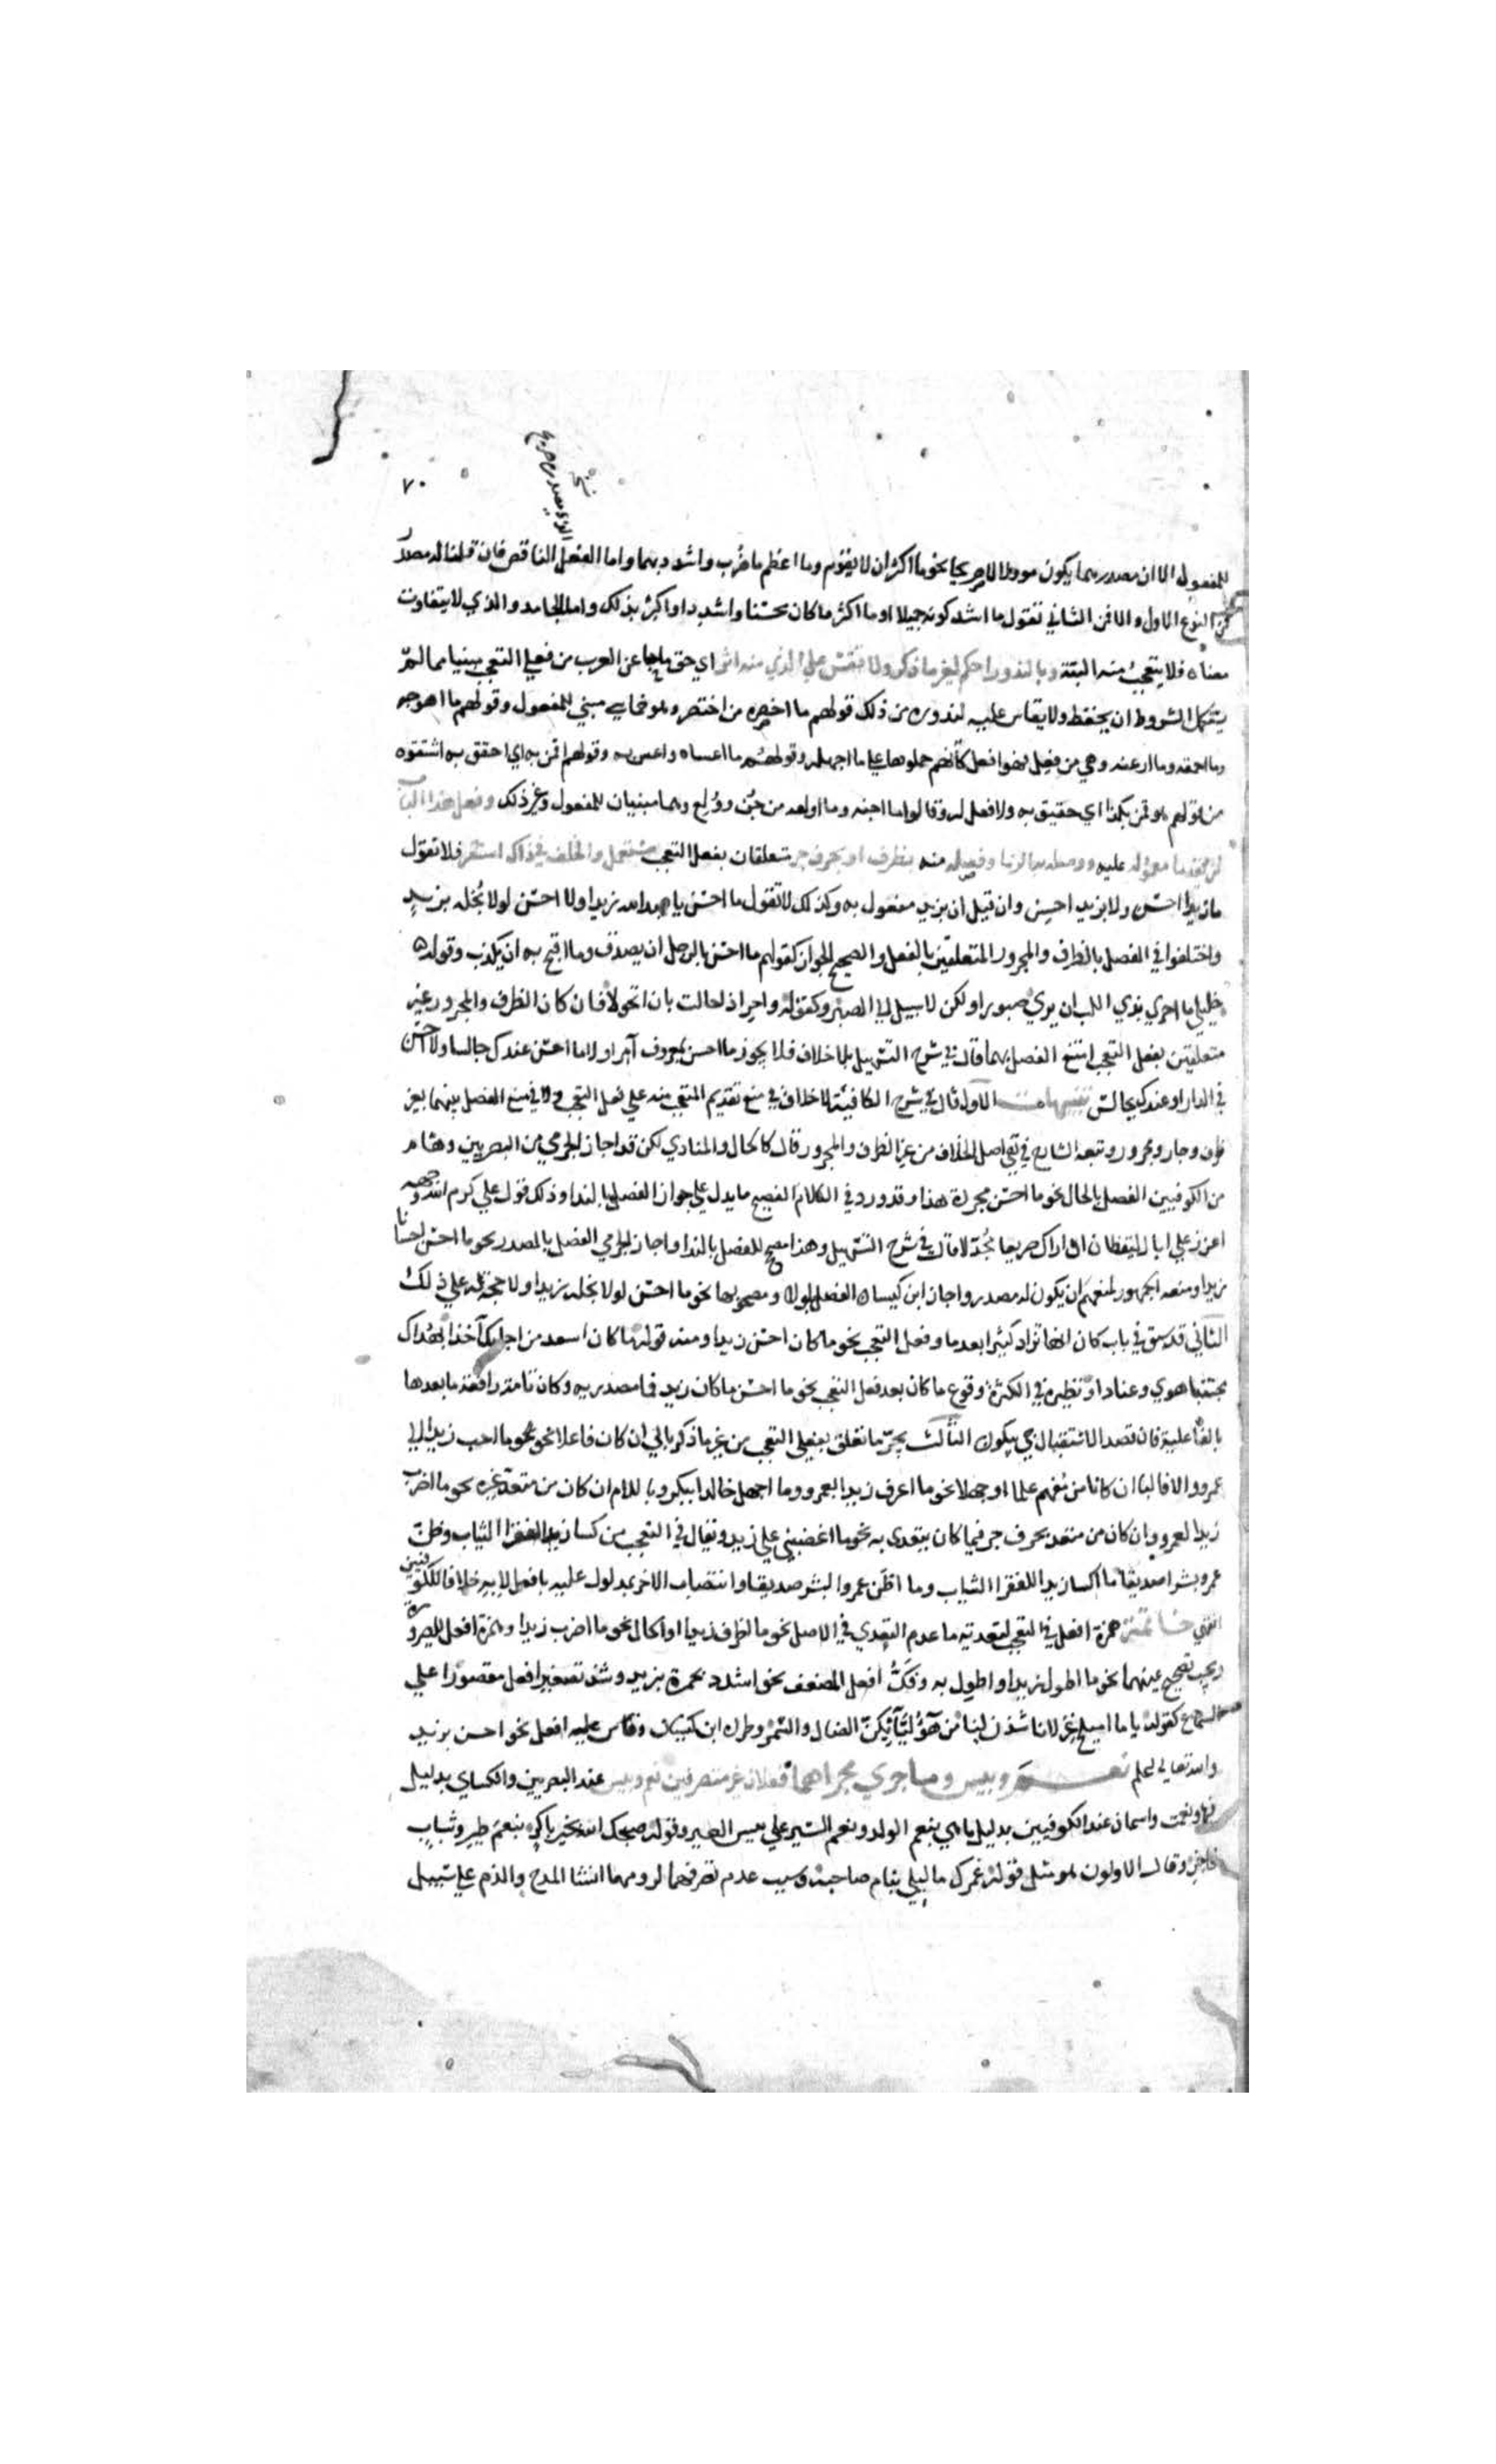 ٧٠
نسخة
للمفعول الا ان مصدرهما يكون موولا لا صريحا نحو ما اكثر ان لا يقوم وما اعظم ما ضُرب واشدد بهما واما الفعل الناقص فان قلنا له مصدر
فمن النوع الاول والا فمن الثاني تقول ما اشد كونه جميلا او ما اكثر ما كان محسنا واشدد او اكثر بذلك واما الجامد والذي لا يتفاوت
معناه فلا يتعجب منه البتة وبالندور احكم لغير ما ذكر ولا تقس على الذي منه اثر اي حق ما جا عن العرب من فعلي التعجب مبنيا مما لم
يستكمل الشروط ان يحفظ ولا يقاس عليه لندوره من ذلك قولهم ما اخصره من اختصر وهو خماسي مبني للمفعول وقولهم ما اهوجه
وما احمقه وما ارعنه وهي من فعل فهو افعل كأنهم حملوها على ما اجهله وقولهم ما اعساه واعس به وقولهم اقمن به اي احقق به اشتقوه
من قولهم هو قمن بكذا اي حقيق به ولا فعل له وقالوا ما اجنه وما اولعه من جُن ووُلع وهما مبنيان للمفعول وغير ذلك وفعل هذا الباب
لن يقدما معموله عليه ووصله به الزما وفصله منه بظرف او بحرف جر متعلقان بفعل التعجب مستعمل والخلف في ذاك استقر فلا تقول
ما زيدا احسن ولا بزيد احسن وان قيل ان بزيد مفعول به وكذلك لا تقول ما احسن يا عبد الله زيدا ولا احسن لولا بُخله بزيد
واختلفوا في الفصل بالظرف والمجرور المتعلقين بالفعل والصحيح الجواز كقولهم ما احسن بالرجل ان يصدق وما اقبح به ان يكذب وقوله
خليلي ما احرى بذي اللب ان يرى صبورا ولكن لا سبيل الى الصبر وكقوله واحر اذا حالت بان اتحولا فان كان الظرف والمجرور غير
متعلقين بفعل التعجب امتنع الفصل بهما قال في شرح التسهيل بلا خلاف فلا يجوز ما احسن بمعروف آمرا ولا ما احسن عندك جالسا ولا احسن
في الدار او عندك بجالس تنبيهات الاول قال في شرح الكافية لا خلاف في منع تقديم المتعجب منه على فعل التعجب ولا في منع الفصل بينهما بغير
ظرف وجار ومجرور وتبعه الشارح في نفي اصل الخلاف من غير الظرف والمجرور قال كالحال والمنادي لكن قد اجاز الجرمي من البصريين وهشام
من الكوفيين الفصل بالحال نحو ما احسن مجردة هندا وقد ورد في الكلام الفصيح ما يدل على جواز الفصل بالندا وذلك قول علي كرم الله وجهه
اعزز علي ابا اليقظان ان اراك صريعا مُجدّلا قال في شرح التسهيل وهذا مصحح للفصل بالندا واجاز الجرمي الفصل بالمصدر نحو ما احسن احسانا
زيدا ومنعه الجمهور لمنعهم ان يكون له مصدر واجاز ابن كيسان الفصل بلولا ومصحوبها نحو ما احسن لولا بخله زيدا ولا حجة له على ذلك
الثاني قد سبق في باب كان انها تزاد كثيرا بعد ما وفعل التعجب نحو ما كان احسن زيدا ومنه قوله ما كان اسعد من اجابك آخذا بهُداك
مجتنبا هوي وعنادا ونظيره في الكثرة وقوع ما كان بعد فعل التعجب نحو ما احسن ما كان زيد فما مصدرية وكان تامة رافعة ما بعدها
بالفاعلية فان قصد الاستقبال جي بيكون الثالث يجر ما تعلق بفعلي التعجب من غير ما ذكر بالي ان كان فاعلا نحو ما احب زيدا الي
عمرو والا فالبا ان كانا من مُفهم علما او جهلا نحو ما اعرف زيدا بعمرو وما اجهل خالدا ببكر وباللام ان كان من متعد غيره نحو ما اضرب
زيدا لعمرو وان كان من متعد بحرف جر فبما كان يتعدى به نحو ما اغضبني على زيد ويقال في التعجب من كسا زيد الفقرا الثياب وظن
عمرو بشرا صديقا ما اكسا زيدا للفقرا الثياب وما اظن عمرا لبشر صديقا وانتصاب الاخر بمدلول عليه بافعل لا به خلافا للكوفيين
انتهى خاتمة همزة افعل في التعجب لتعدية ما عدم التعدي في الاصل نحو ما اظرف زيدا او الحال نحو ما اضرب زيدا وهمزة افعل للصيرورة
ويجب تصحيح عينهما نحو ما اطول زيدا واطول به وفكُّ افعل المضعف نحو اشدد بحمرة زيد وشذ تصغير افعل مقصورا على
السماع كقوله يا ما اميلح غزلانا شدن لنا من هؤليائكن الضال والسمر وطرده ابن كيسان وقاس عليه افعل نحو احسن بزيد
والله تعالى اعلم نعم وبيس وما جرى مجراهما فعلان غير متصرفين نعم وبيس عند البصريين والكساي بدليل
فبها ونعمت واسمان عند الكوفيين بدليل ما هي بنعم الولد ونعم السير على بيس العير وقوله صبحك الله بخير باكر بنعم طير وشباب
فاخر وقال الاولون هو مثل قوله عمرك ما ليلي بنام صاحبه وسبب عدم تصرفهما لزومهما انشا المدح والذم على سبيل